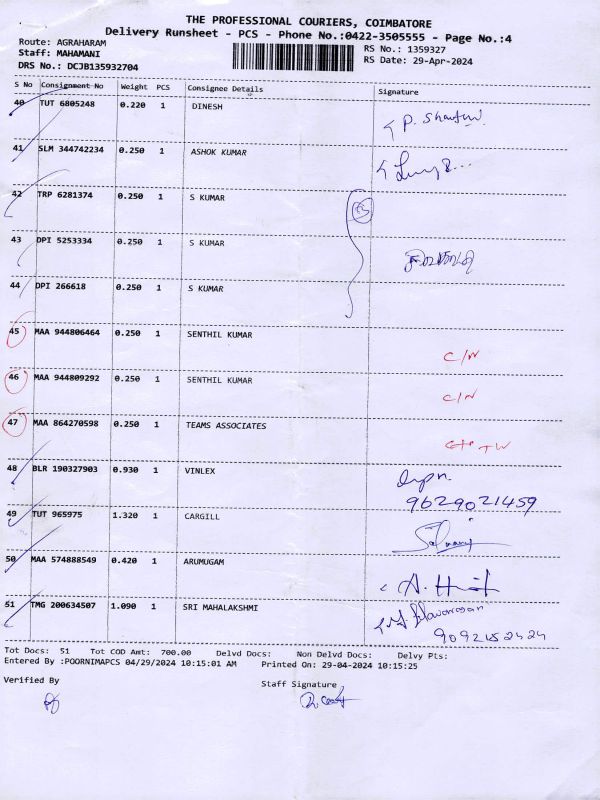 THE PROFESSIONAL COURIERS, COIMBATORE
Delivery Runsheet - PCS - Phone No.:0422-3505555 - Page No.:4
Route: AGRAHARAM
RS No.: 1359327
Staff: MAHAMANI
RS Date: 29-Apr-2024
DRS No.: DCJB135932704
S No Consignment No Weight PCS Consignee Details Signature
40 TUT 6805248 0.220 1 DINESH
41 SLM 344742234 0.250 1 ASHOK KUMAR
42 TRP 6281374 0.250 1 S KUMAR
43 DPI 5253334 0.250 1 S KUMAR
44 DPI 266618 0.250 1 S KUMAR
45 MAA 944806464 0.250 1 SENTHIL KUMAR C/N
46 MAA 944809292 0.250 1 SENTHIL KUMAR C/N
47 MAA 864270598 0.250 1 TEAMS ASSOCIATES
48 BLR 190327903 0.930 1 VINLEX
9629021459
49 TUT 965975 1.320 1 CARGILL
50 MAA 574888549 0.420 1 ARUMUGAM
51 TMG 200634507 1.090 1 SRI MAHALAKSHMI
9092152424
Tot Docs: 51 Tot COD Amt: 700.00 Delvd Docs: Non Delvd Docs: Delvy Pts:
Entered By :POORNIMAPCS 04/29/2024 10:15:01 AM Printed On: 29-04-2024 10:15:25
Verified By
Staff Signature